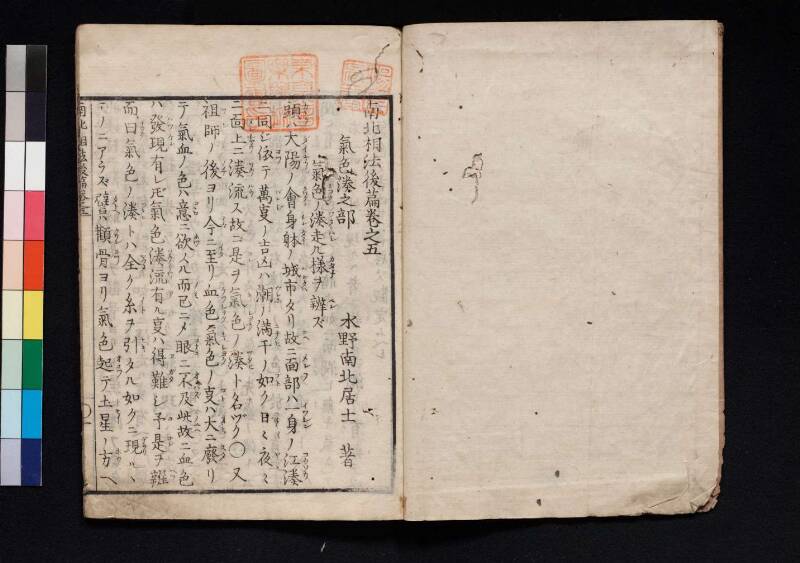 南北相法後篇巻之五
氣色湊之部
水野南北居士 著
氣色ノ湊走ル様ヲ辨ズ
頭ハ大陽ノ會身躰ノ城市タリ故ニ面部ハ一身ノ江湊
ニ同ジ依テ萬叓ノ吉凶ハ潮ノ満干ノ如ク日々夜々
ニ面上ニ湊流ス故ニ是ヲ氣色ノ湊ト名ヅク○又
祖師ノ後ヨリ今ニ至リ血色氣色ノ叓ハ大ニ廢リ
テ氣血ノ色ハ意ニ欲ルノミ而已ニメ眼ニ不及此故ニ血色
ハ發現有レ𪜈氣色湊流有ル叓ハ得難シ予是ヲ辨
而曰氣色ノ湊トハ全ク糸ヲ引タル如クニ現ルヽ
モノニアラズ譬ハ顴骨ヨリ氣色起テ土星ノ方ヘ
南北相法後篇巻五